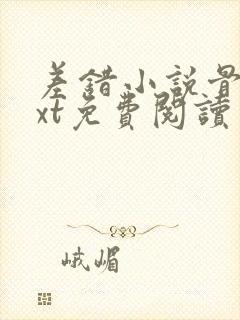 差錯小說
xt免費閱讀
峨嵋